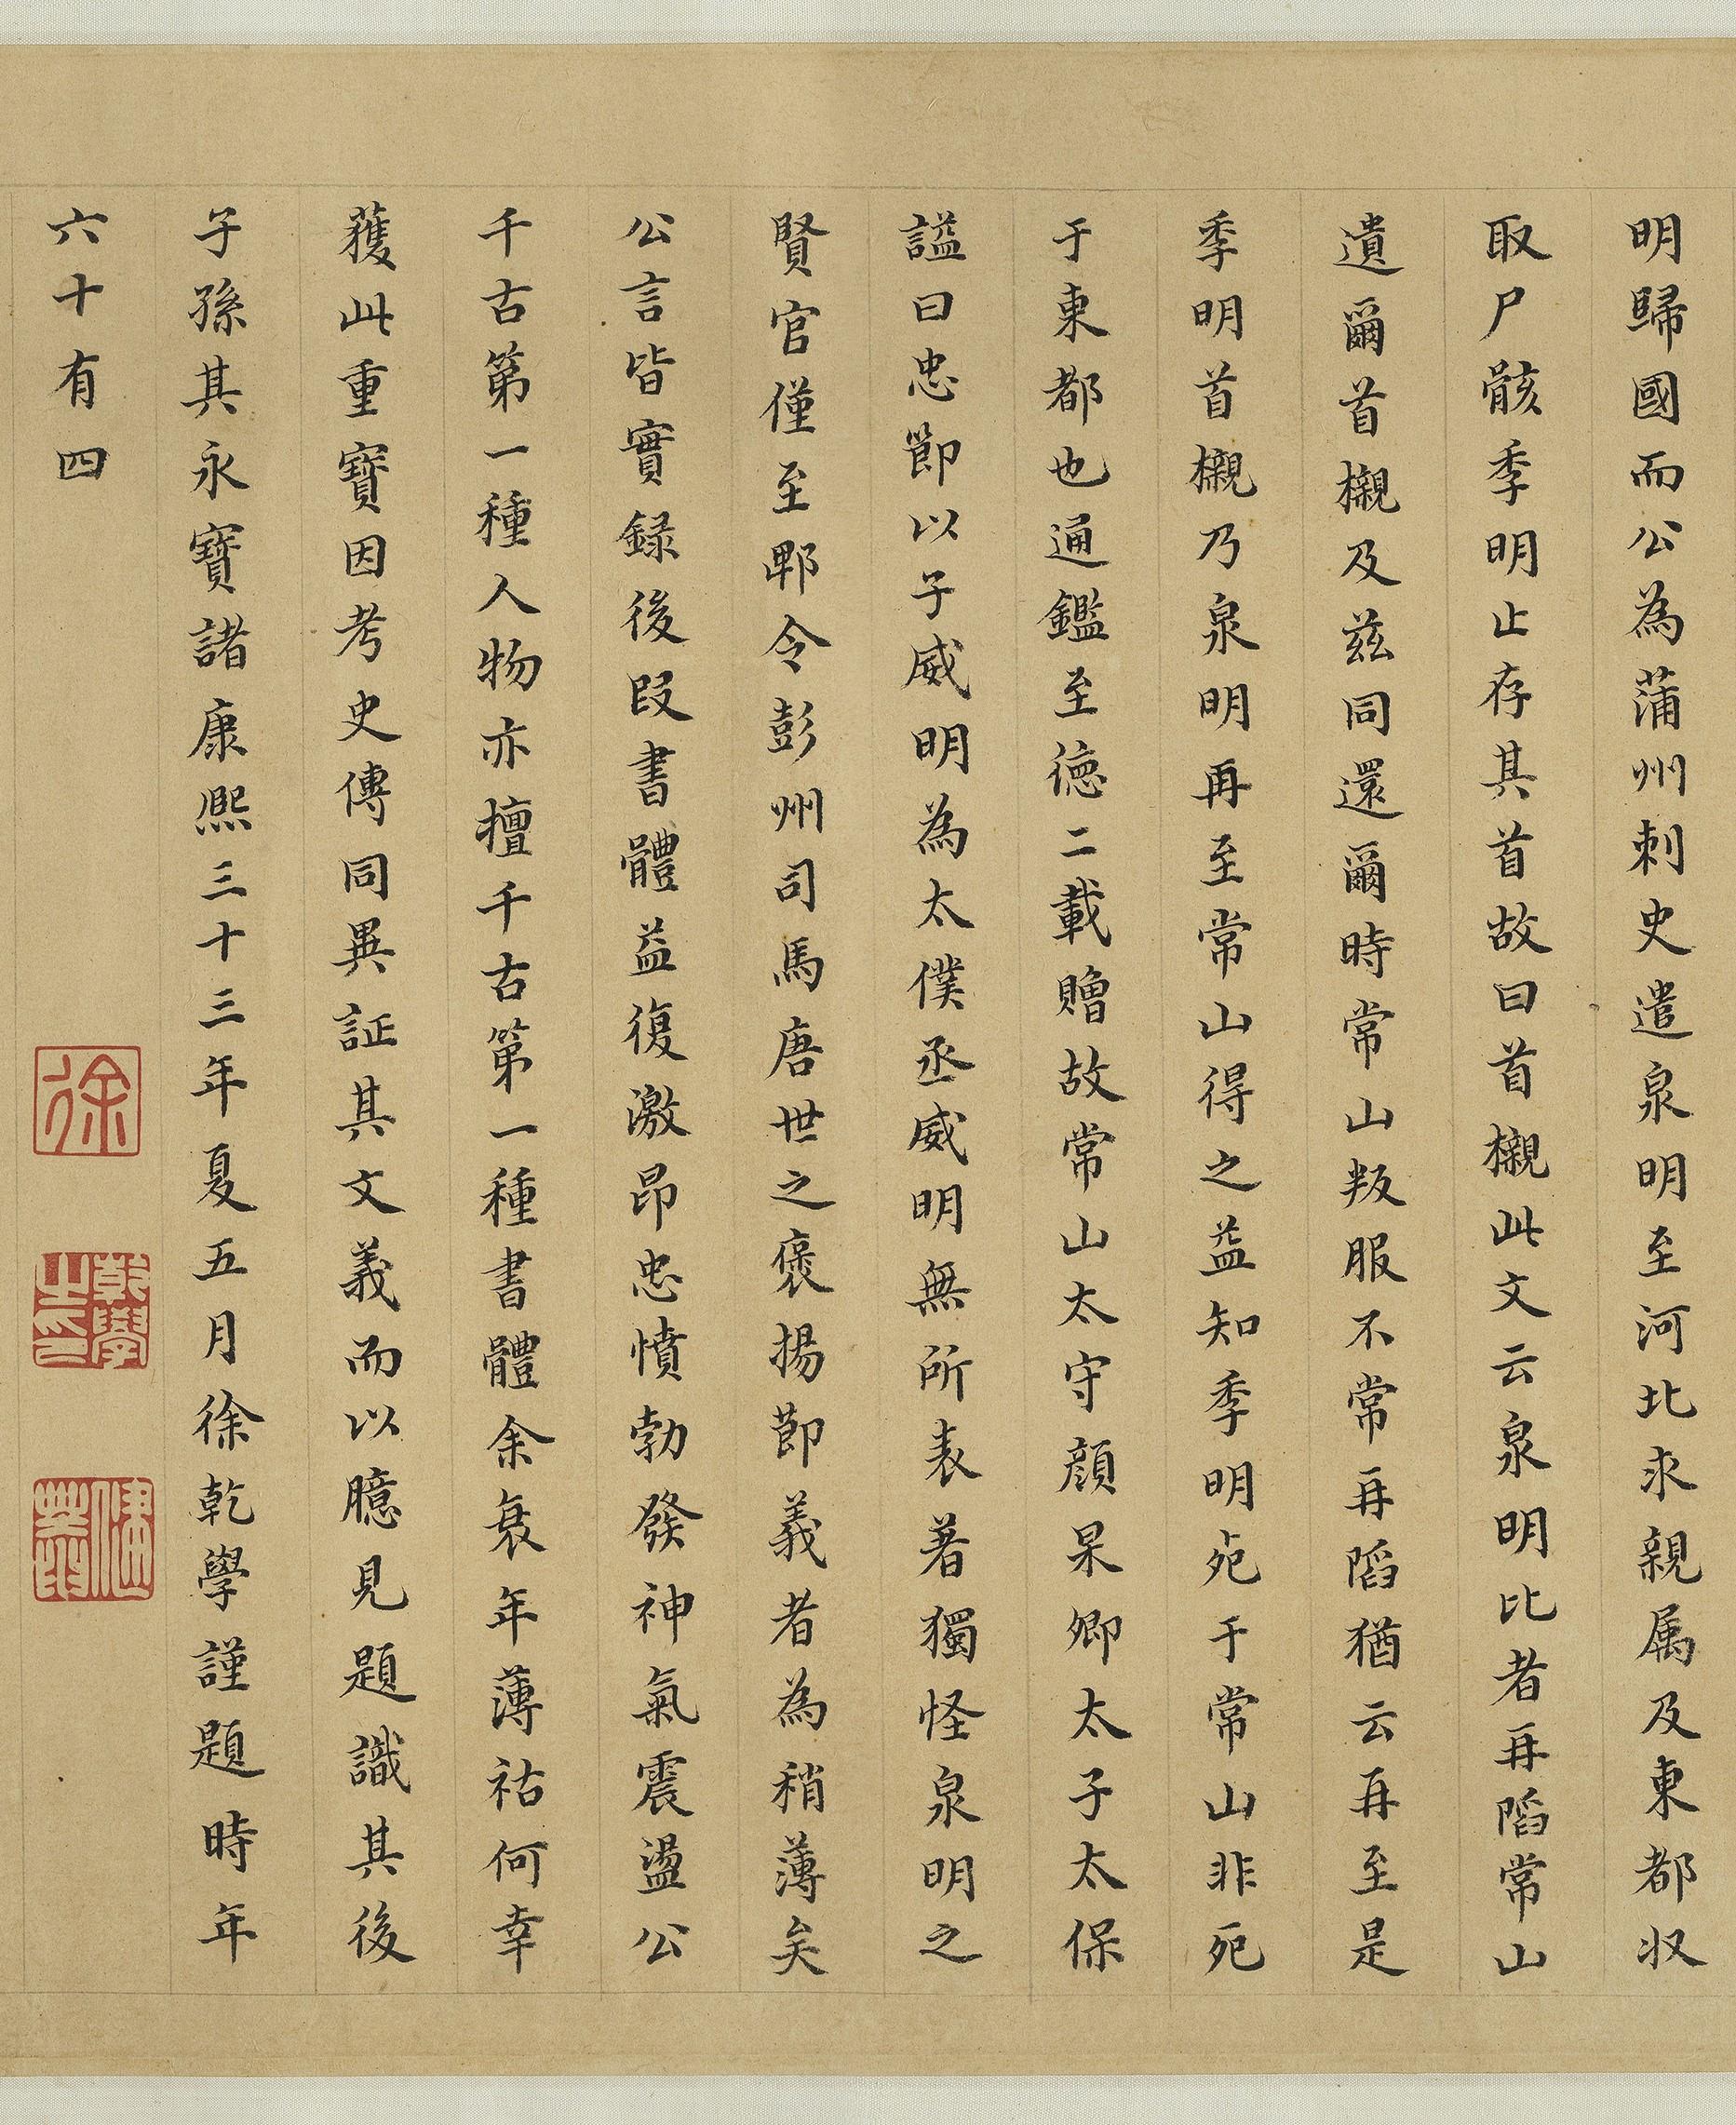 明歸國而公為蒲州刺史遣泉明至河北求親属及東都収
取尸骸季明止存其首故曰首櫬此文云泉明比者再陷常山
遺爾首櫬及茲同還爾時常山叛服不常再陷猶云再至是
季明首櫬乃泉明再至常山得之益知季明死于常山非死
于東都也通鑑至德二載贈故常山太守顔杲卿太子太保
謚曰忠節以子威明為太僕丞威明無所表著獨怪泉明之
賢官僅至郫令彭州司馬唐世之褒揚節義者為稍薄矣
公言皆實録後段書體益復激昂忠憤勃發神氣震盪公
千古第一種人物亦擅千古第一種書體余衰年薄祜何幸
獲此重寶因考史傳同異証其文義而以臆見題識其後
子孫其永寶諸康熙三十三年夏五月徐乾學謹題時年
六十有四
徐
乾學之印
健菴